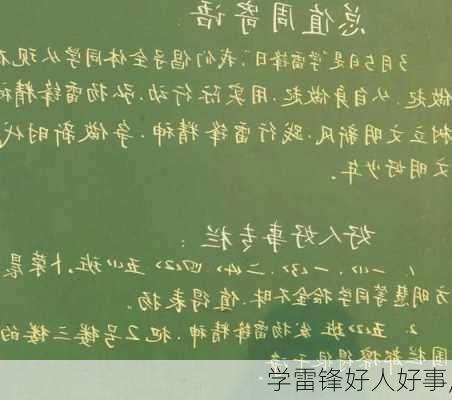 总值周寄语
3月5日是"学雷锋日",我们倡导全体同学从现在
做起.从自身做起.用实际行动.弘扬雷锋精神
树立文明新风.践行雷锋精神.争做新时代
文明好少年。
好人好事专栏:
1. 一(1).一(3).二(4).四(2).五(1)班.卜荣晨
方明慧等同学拾金不昧.值得表扬。
2. 五(2)班.发扬雷锋精神.把2号楼三楼的
围栏都擦得很干净
学雷锋好人好事,